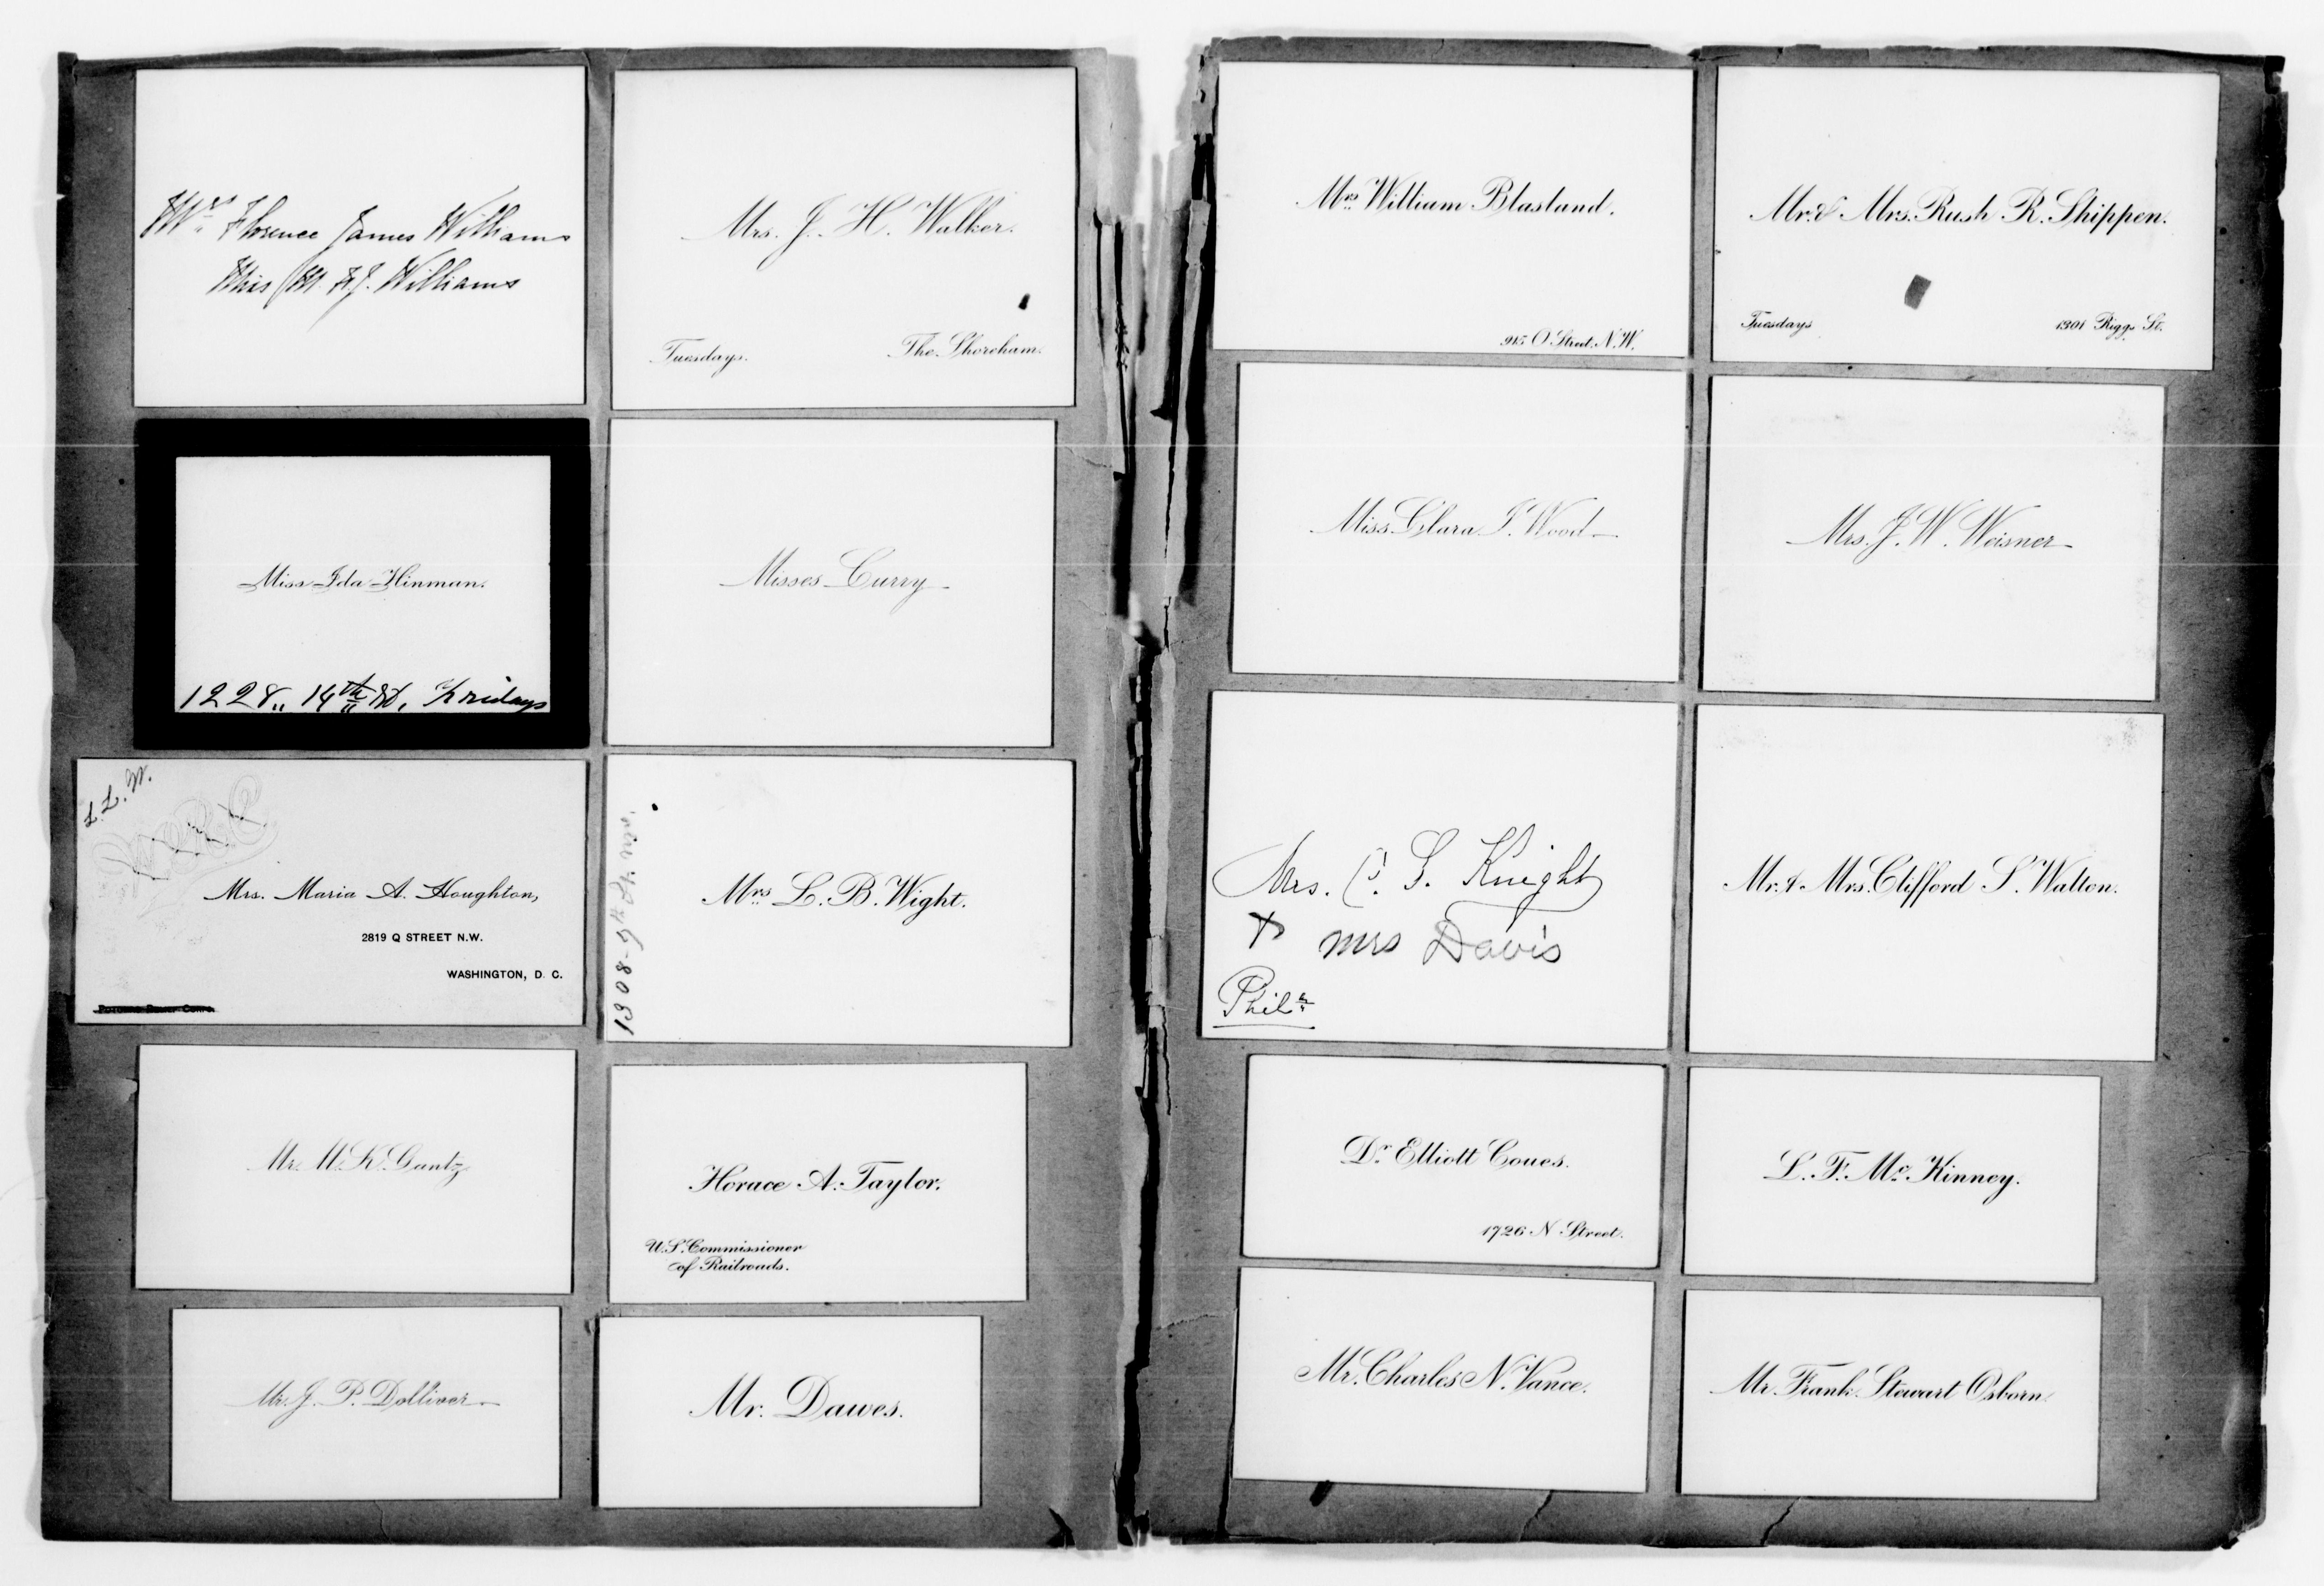 Mrs. Florence James Williams
Miss M. F. J. Williams
Mrs. J. H. Walker.
Tuesdays.
The Shoreham.
Miss Ida Hinman.
1228, 14th St, Fridays
Misses Curry
L. L. W.
Mrs. Maria A. Houghton,
2819 Q STREET N.W.
WASHINGTON, D. C.
Mrs. L. B. Wight.
1308-9th St. nw.
Mr. M. K. Gantz.
Horace A. Taylor.
U.S. Commissioner
of Railroads.
Mr. J. P. Dolliver
Mr. Dawes.
Mrs. William Blasland.
915 O Street N.W.
Mr. & Mrs. Rush R. Shippen.
Tuesdays
1301 Riggs St.
Miss Clara I. Wood
Mrs. J. W. Weisner
Mrs. C. S. Knight
+ Mrs Davis
Phila
Mr. & Mrs. Clifford S. Walton.
Dr. Elliott Coues.
1726 N Street.
L. F. McKinney.
Mr. Charles N. Vance.
Mr. Frank Stewart Osborn.